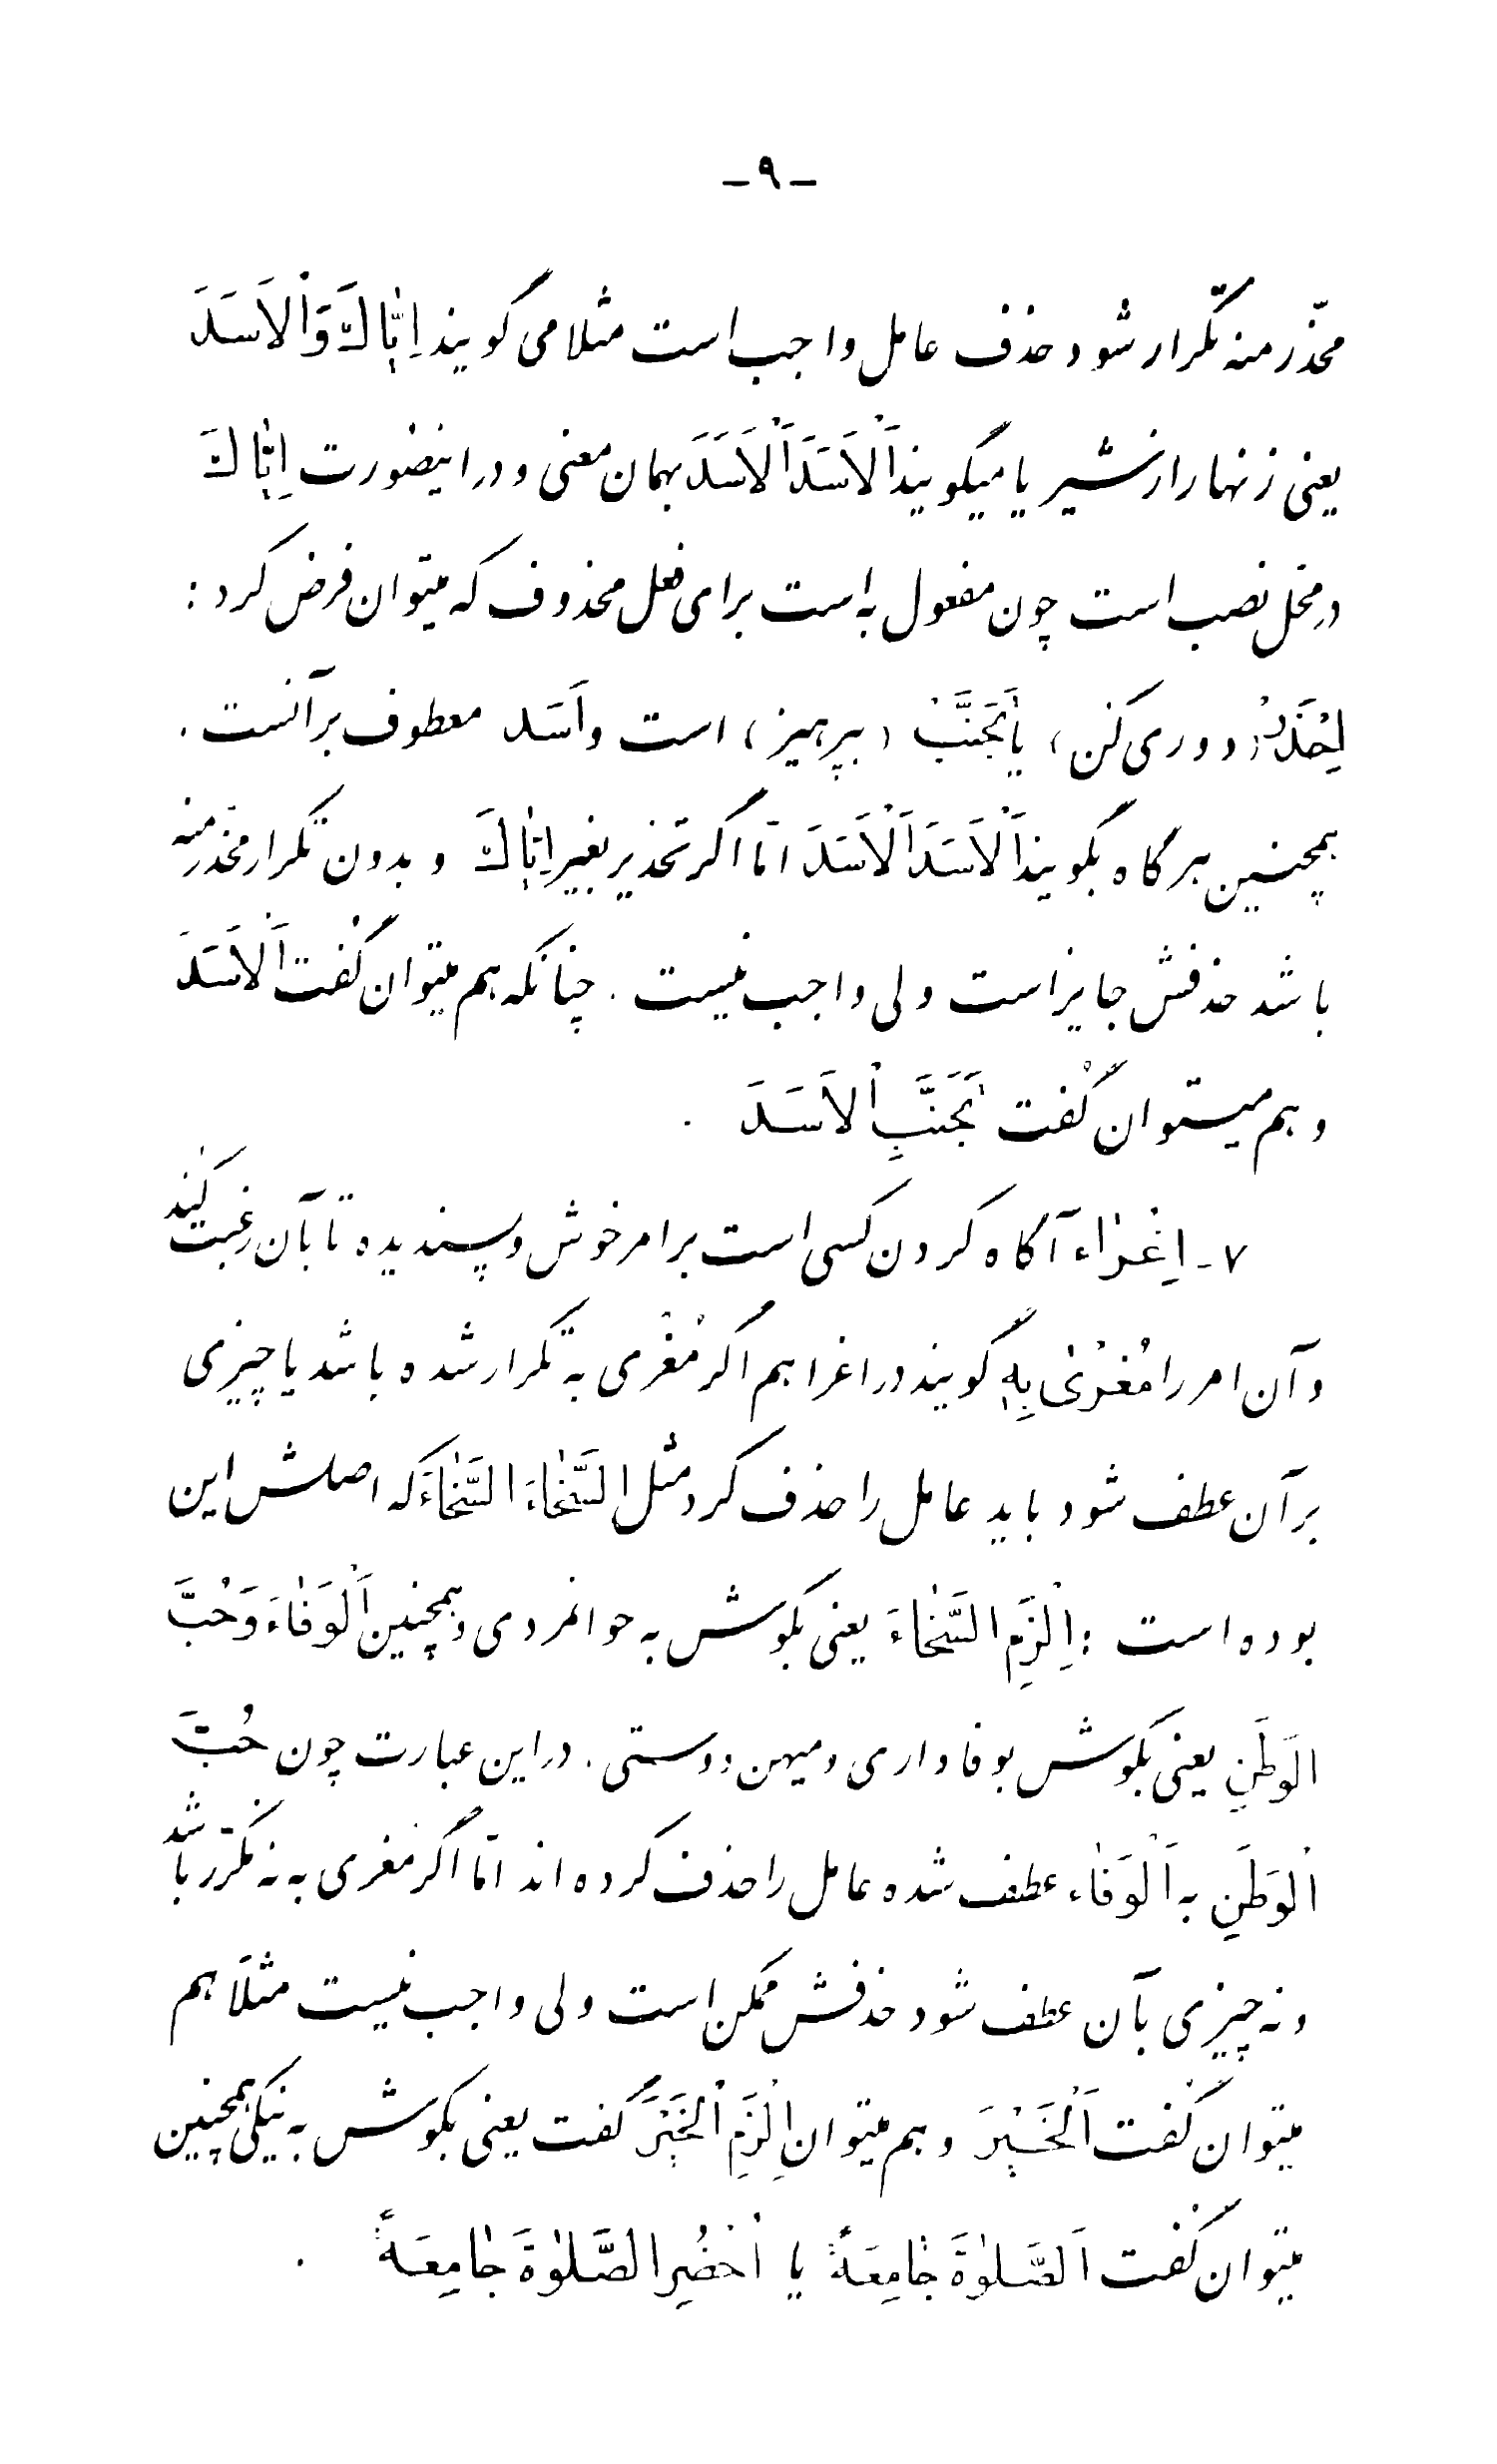 -۹-
محذّر منه تکرار شود حذف عامل واجب است مثلا می گویند اِیّٰاكَ وَاْلاَسَدَ
یعنی زنهار از شیر یا میگویند اَلْاَسَدَ اَلْاَسَدَ بهمان معنی و در اینصورت اِیّٰاكَ
در محل نصب است چون مفعول به است برای فعل محذوف که میتوان فرض کرد :
اِحْذَرْ (دوری کن) یا تَجَنَّبْ (بپرهیز) است و اَسَد معطوف بر آنست .
همچنین هر گاه بگویند اَلْاَسَدَ اَلْاَسَدَ امّا اگر تحذیر بغیر اِیّٰاكَ و بدون تکرار محذّر منه
باشد حذفش جایز است ولی واجب نیست . چنانکه هم میتوان گفت اَلْاَسَدَ
و هم میتوان گفت تَجَنَّبِ اْلاَسَدَ .
۷- اِغْرٰاء آگاه کردن کسی است بر امر خوش و پسندیده تا بآن رغبت کند
و آن امر را مُغْرىٰ بِهِ گویند در اغرا هم اگر مُغْری به تکرار شده باشد یا چیزی
بر آن عطف شود باید عامل را حذف کرد مثل السَّخٰاءَ السَّخٰاءَ که اصلش این
بوده است : اِلْزَمِ السَّخٰاءَ یعنی بکوش به جوانمردی و همچنین اَلْوَفٰاءَ وَحُبَّ
الوَطَنِ یعنی بکوش بوفاداری و میهن دوستی . در این عبارت چون حُبَّ
اْلوَطَنِ به اَلْوَفٰاء عطف شده عامل را حذف کرده اند امّا اگر مغری به نه مکرّر باشد
و نه چیزی بآن عطف شود حذفش ممکن است ولی واجب نیست مثلاً هم
میتوان گفت اَلْخَیْرَ و هم میتوان اِلْزَمِ اْلخَیْرَ گفت یعنی بکوش به نیکی همچنین
میتوان گفت اَلصَّلوٰةَ جٰامِعَةً یا اُحْضُرِ الصَّلوٰةَ جٰامِعَةً .